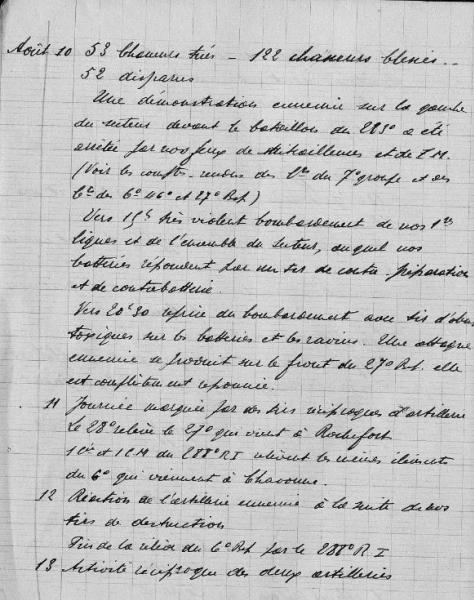 Août 10 53 Chasseurs tués – 122 chasseurs blessés..
52 disparus
Une démonstration ennemie sur la gauche
du secteur devant le bataillon du 285° a été
arrêtée par nos feux de Mitrailleuses et de F.M.
(Voir les comptes-rendus des du 7° groupe et des
des 6° 46° et 27° Bat.)
Vers 15h très violent bombardement de nos 1res
lignes et de l'ensemble du secteur, auquel nos
batteries répondent par un tir de contre-préparation
et de contrebatterie.
Vers 20h30 reprise du bombardement avec tir d'obus
toxiques sur les batteries et les ravins. Une attaque
ennemie se produit sur le front du 27° Bat. elle
est complètement repoussée.
11 Journée marquée par des tirs réciproques d'artillerie
Le 28° relève le 27° qui vient à Rochefort
1 Cie et 1 C.M du 288° R.I relèvent les mêmes éléments
du 6° qui viennent à Chavonne.
12 Réaction de l'artillerie ennemie à la suite de nos
tirs de destruction
Fin de la relève du 6° Bat par le 288° R.I
13 Activité réciproque des deux artilleries